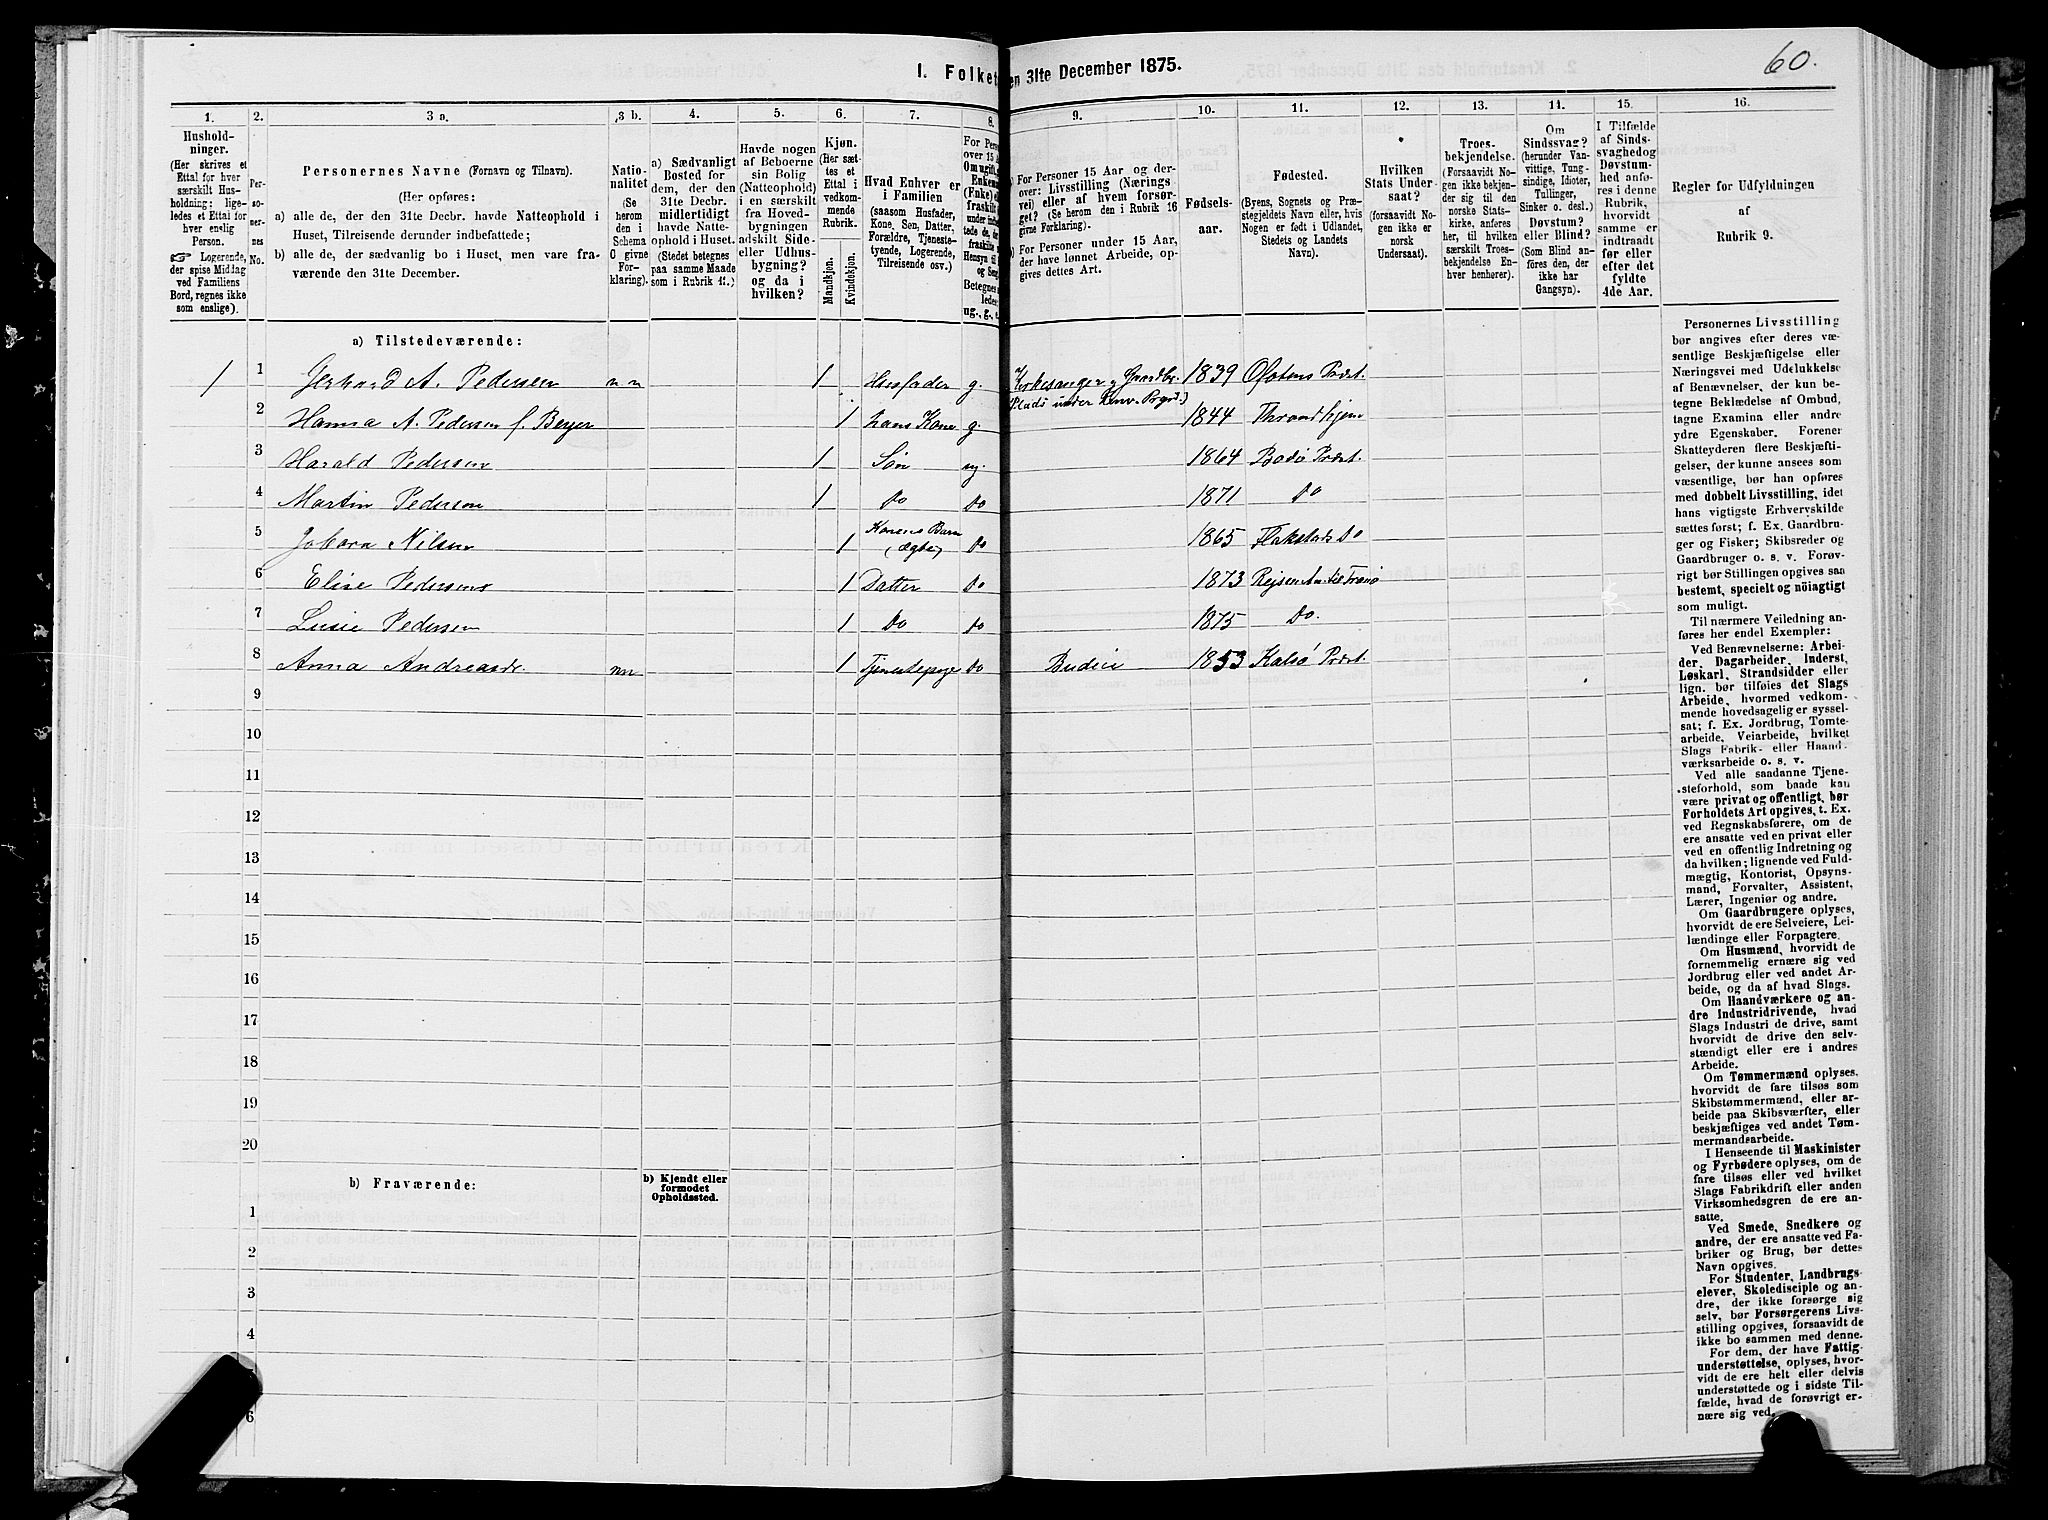 60.
1. Folket
en 31te December 1875.
1. 2. 3 a. 3 b. 4. 5. 6. 7. 8. 9. 10. 11. 12. 13. 14. 15. 16.
Hushold-
ninger.
(Her skrives et
Ettal for hver
særskilt Hus-
holdning; lige-
ledes et Ettal for
hver enslig
Person.
☞ Logerende,
der spise Middag
ved Familiens
Bord, regnes ikke
som enslige).
Per-
so-
ner-
nes
No.
Personernes Navne (Fornavn og Tilnavn).
(Her opføres:
a) alle de, der den 31te Decbr. havde Natteophold i
Huset, Tilreisende derunder indbefattede;
b) alle de, der sædvanlig bo i Huset, men vare fra-
værende den 31te December.
Natio-
nalitet
(Se
herom
den i
Schema
O givne
For-
klaring).
a) Sædvanligt
Bosted for
dem, der den
31te Decbr.
midlertidigt
havde Natte-
ophold i Huset.
(Stedet betegnes
paa samme Maade
som i Rubrik 11.)
Havde nogen
af Beboerne
sin Bolig
(Natteophold)
i en særskilt
fra Hoved-
bygningen
adskilt Side-
eller Udhus-
bygning?
og da i
hvilken?
Kjøn.
(Her sæt-
tes et
Ettal i
vedkom-
mende
Rubrik.
Mandkjøn.
Kvindekjøn.
Hvad Enhver er
i Familien
(saasom Husfader,
Kone, Søn, Datter,
Forældre, Tjeneste-
tyende, Logerende,
Tilreisende osv.)
For Pers
over 15 A
Om ugift,
Enkem
(Enke) e
fraskilt
ug., g., e.
For Personer 15 Aar og der-
over: Livsstilling (Nærings
vei) eller af hvem forsør-
get? (Se herom den i Rubrik 16
givne Forklaring).
For Personer under 15 Aar,
der have lønnet Arbeide, op-
gives dettes Art.
Fødsels-
aar.
Fødested.
(Byens, Sognets og Præ-
stegjeldets Navn eller, hvis
Nogen er født i Udlandet,
Stedets og Landets
Navn).
Hvilken
Stats Under-
saat?
(forsaavidt No-
gen ikke er
norsk
Undersaat).
Troes-
bekjendelse.
(Forsaavidt No-
gen ikke bekjen-
der sig til den
norske Stats-
kirke, anføres
her, til hvilken
særskilt Troes-
bekjendelse En-
hver henhører).
Om
Sindssvag?
(herunder Van-
vittige, Tung-
sindige, Idioter,
Tullinger,
Sinker o. desl.)
Døvstum?
eller Blind?
(Som Blind an-
føres den, der
ikke har
Gangsyn).
I Tilfælde
af Sinds-
svaghed og
Døvstum-
hed anfø-
res i denne
Rubrik,
hvorvidt
samme er
indtraadt
før eller
efter det
fyldte
4de Aar.
Regler for Udfyldningen
af
Rubrik 9.
a) Tilstedeværende:
1 1 Gerhard A. Pedersen nn 1 Husfader g. Kirkesanger g Gaardbr. 1839 Ofotens Præst.
(Plads under Præst.)
2 Hanna A. Pedersen f. Beyer 1 hans Kone g. 1844 Throndhjem
3 Harald Pedersen 1 Søn ug. 1864 Bodø Præst.
4 Martin Pedersen 1 Do Do 1871 Do
5 Nilsen 1 Konens Barn (ægte) Do 1865 Flakstads Do
6 Elise Pedersen 1 Datter Do 1873 Tranø
7 Lusie Pedersen 1 Do Do 1875 Do.
8 Anna Andreasdr. nn 1 Do Budeie 1853 Kalsø Præst.
9
10
11
12
13
14
15
16
17
18
19
20
b) Fraværende: b) Kjendt eller
formodet
Opholdssted.
1
2
3
4
6
Personernes Livsstilling
bør angives efter deres væ-
sentlige Beskjæftigelse eller
Næringsvei med Udelukkelse
af Benævnelser, der kun be-
tegne Beklædelse af Ombud,
tagne Examina eller andre
ydre Egenskaber. Forener
Skatteyderen flere Beskjæfti-
gelser, der kunne ansees som
væsentlige, bør han opføres
med dobbelt Livsstilling, idet
hans vigtigste Erhvervskilde
sættes først; f. Ex. Gaardbru-
ger og Fisker; Skibsreder og
Gaardbruger o. s. v. Forøv-
rigt bør Stillingen opgives saa
bestemt, specielt og nöiagtigt
som muligt.
Til nærmere Veiledning an-
føres her endel Exempler:
Ved Benævnelserne: Arbei-
der, Dagarbeider, Inderst,
Løskarl, Strandsidder eller
lign. bør tilføies det Slags
Arbeide, hvormed vedkom-
mende hovedsagelig er syssel-
sat; f. Ex. Jordbrug, Tomte-
arbeide, Veiarbeide, hvilket
Slags Fabrik- eller Haand-
værksarbeide o. s. v.
Ved alle saadanne Tjene-
steforhold, som baade kan
være privat og offentligt, bør
Forholdets Art opgives, t. Ex.
ved Regnskabsførere, om de
ere ansatte ved en privat eller
ved en offentlig Indretning og
da hvilken; lignende ved Fuld-
mægtig, Kontorist, Opsyns-
mand, Forvalter, Assistent,
Lærer, Ingeniør og andre.
Om Gaardbrugere oplyses,
hvorvidt de ere Selveiere, Lei-
lændinge eller Forpagtere.
Om Husmænd, hvorvidt de
fornemmelig ernære sig ved
Jordbrug eller ved andet Ar-
beide, og da af hvad Slags.
Om Haandværkere og an-
dre Industridrivende, hvad
Slags Industri de drive, samt
hvorvidt de drive den selv-
stændigt eller ere i andres
Arbeide.
Om Tømmermænd oplyses,
hvorvidt de fare tilsøs som
Skibstømmermænd, eller ar-
beide paa Skibsværfter, eller
beskjæftiges ved andet Tøm-
mermandsarbeide.
I Henseende til Maskinister
og Fyrbødere oplyses, om de
fare tilsøs eller ved hvilket
Slags Fabrikdrift eller anden
Virksomhedsgren de ere an-
satte.
Ved Smede, Snedkere og
andre, der ere ansatte ved Fa-
briker og Brug, bør dettes
Navn opgives.
For Studenter, Landbrugs-
elever, Skoledisciple og an-
dre, der ikke forsørge sig
selv, bør Forsørgerens Livs-
stilling opgives, forsaavidt de
ikke bo sammen med denne.
For dem, der have Fattig-
understøttelse, oplyses, hvor-
vidt de ere helt eller delvis
understøttede og i sidste Til-
fælde, hvad de forøvrigt er-
nære sig ved.